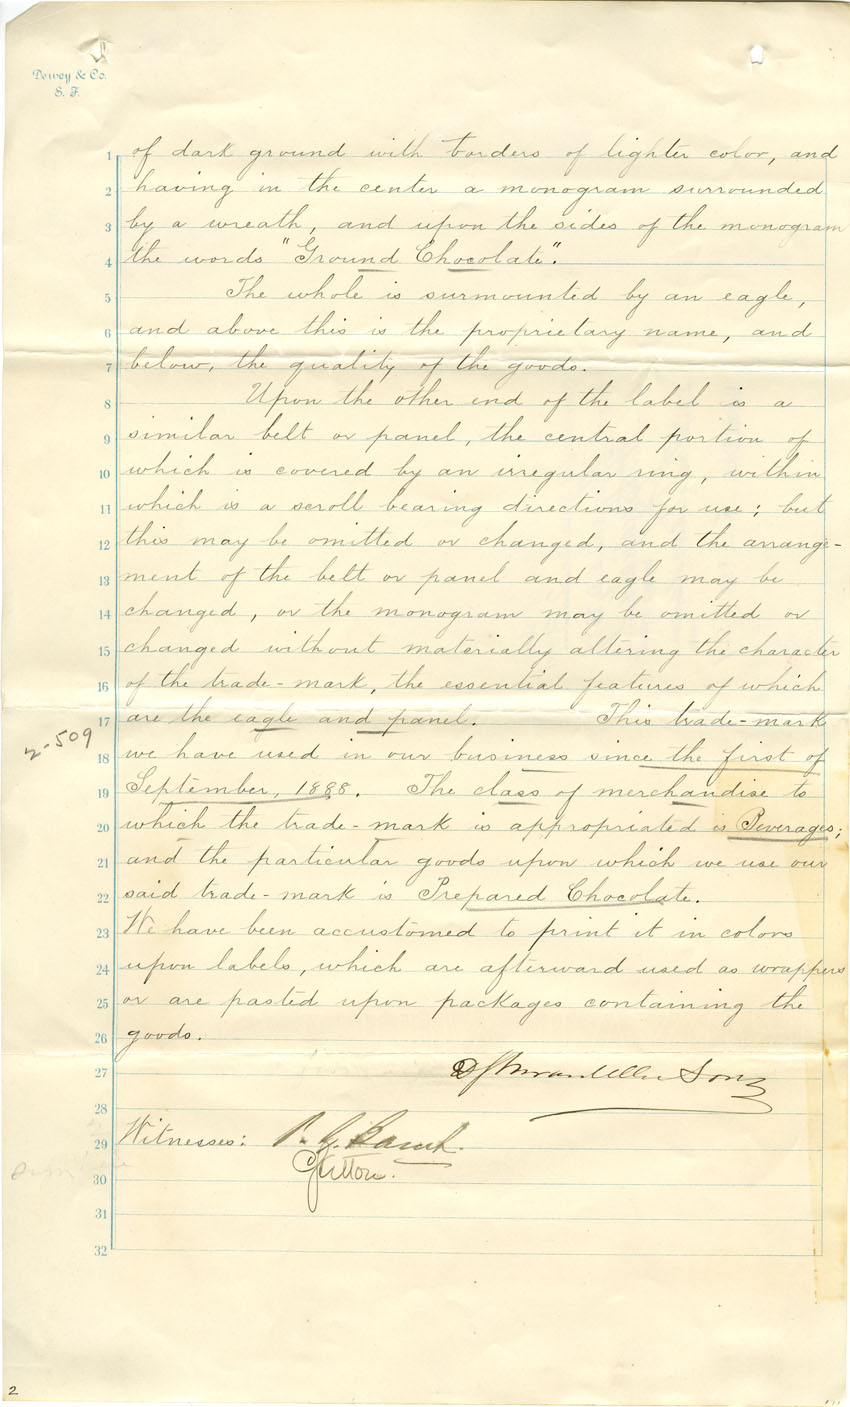 Dewey & Co.
S. F.
1 of dark ground with borders of lighter color, and
2 having in the center a monogram surrounded
3 by a wreath, and upon the sides of the monogram
4 the words "Ground Chocolate".
5 The whole is surmounted by an eagle,
6 and above this is the proprietary name, and
7 below, the quality of the goods.
8 Upon the other end of the label is a
9 similar belt or panel, the central portion of
10 which is covered by an irregular ring, within
11 which is a scroll bearing directions for use; but
12 this may be omitted or changed, and the arrange-
13 ment of the belt or panel and eagle may be
14 changed, or the monogram may be omitted or
15 changed without materially altering the character
16 of the trade-mark, the essential features of which
17 are the eagle and panel. This trade-mark
2-509
18 we have used in our business since the first of
19 September, 1888. The class of merchandise to
20 which the trade-mark is appropriated is Beverages;
21 and the particular goods upon which we use our
22 said trade-mark is Prepared Chocolate.
23 We have been accustomed to print it in colors
24 upon labels, which are afterward used as wrappers
25 or are pasted upon packages containing the
26 goods.
27 Son
28
29 Witnesses:
30
31
32
2